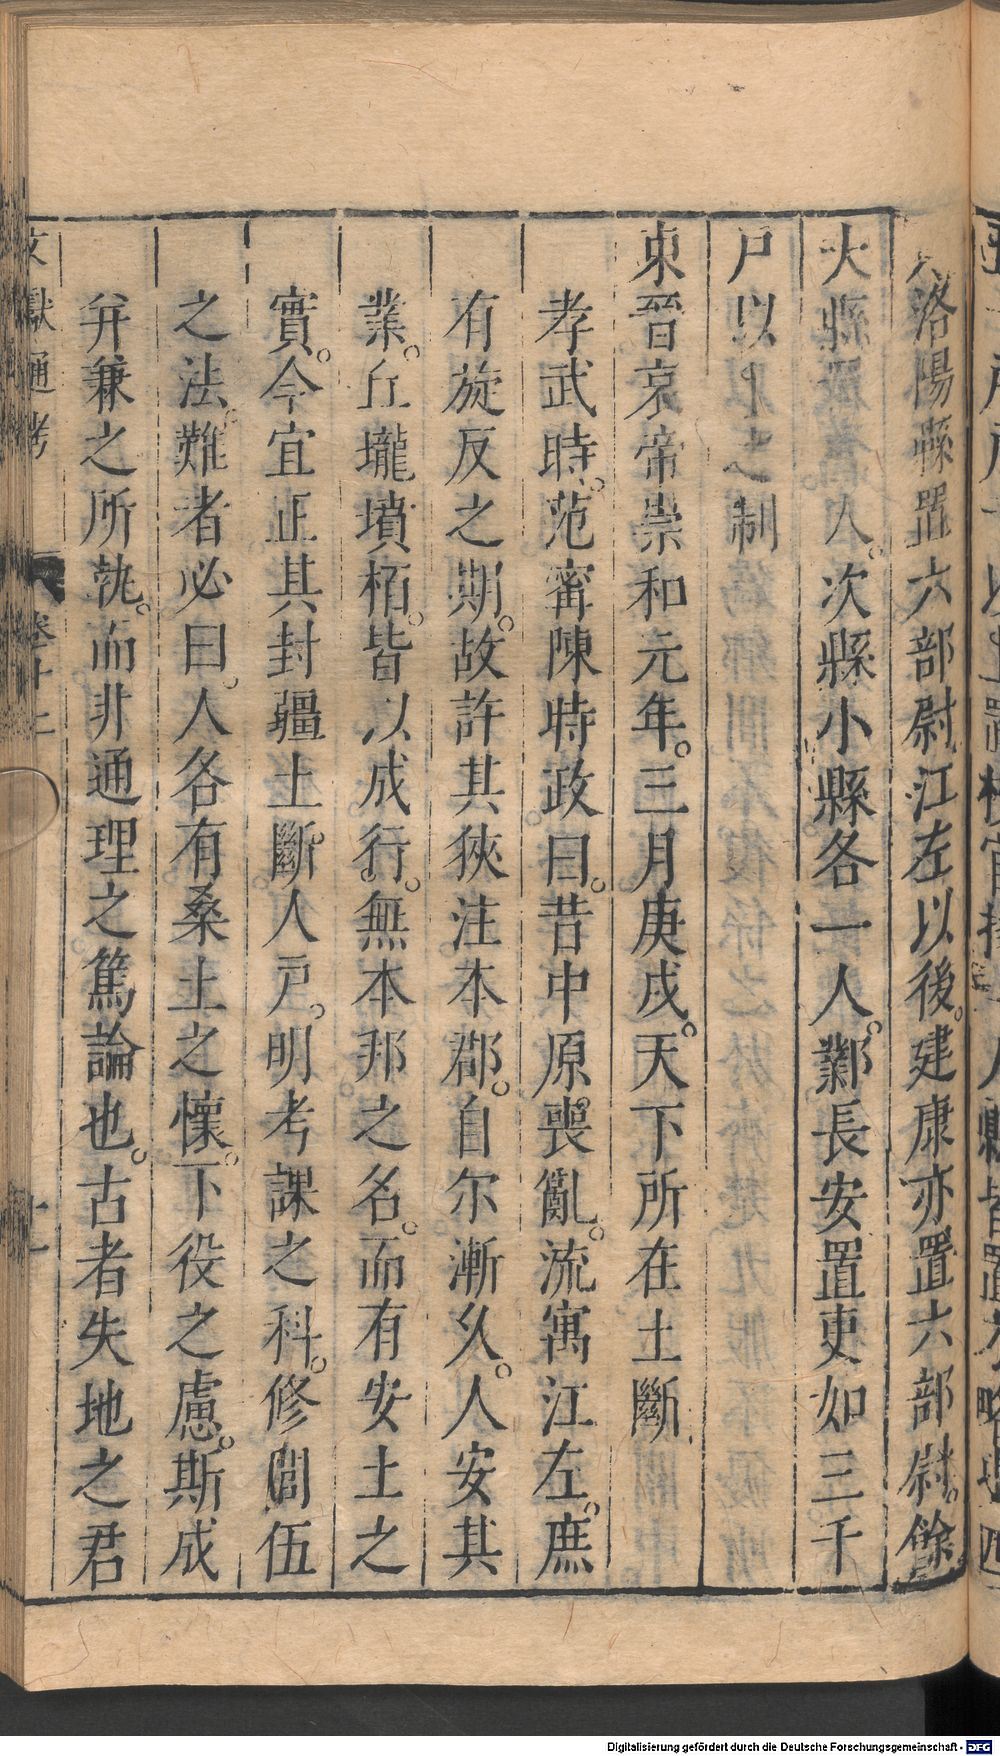 人洛陽縣置六部尉江左以後。建康亦置六部尉。餘
大縣置二人。次縣小縣各一人。鄴長安置吏如三千
戶以上之制
東晉哀帝崇和元年。三月庚戌。天下所在土斷
孝武時。范甯陳時政曰。昔中原喪亂。流寓江左。庶
有旋反之期。故許其挾注本郡。自尔漸久。人安其
業。丘壠墳栢。皆以成行。無本邦之名。而有安土之
實。今宜正其封疆土斷。人戶。明考課之科。修閭伍
之法。難者必曰。人各有桑土之懷。下役之慮。斯成
并兼之所執。而非通理之篤論也。古者失地之君
文獻通考
卷十二
十一
Digitalisierung gefördert durch die Deutsche Forschungsgemeinschaft - DFG